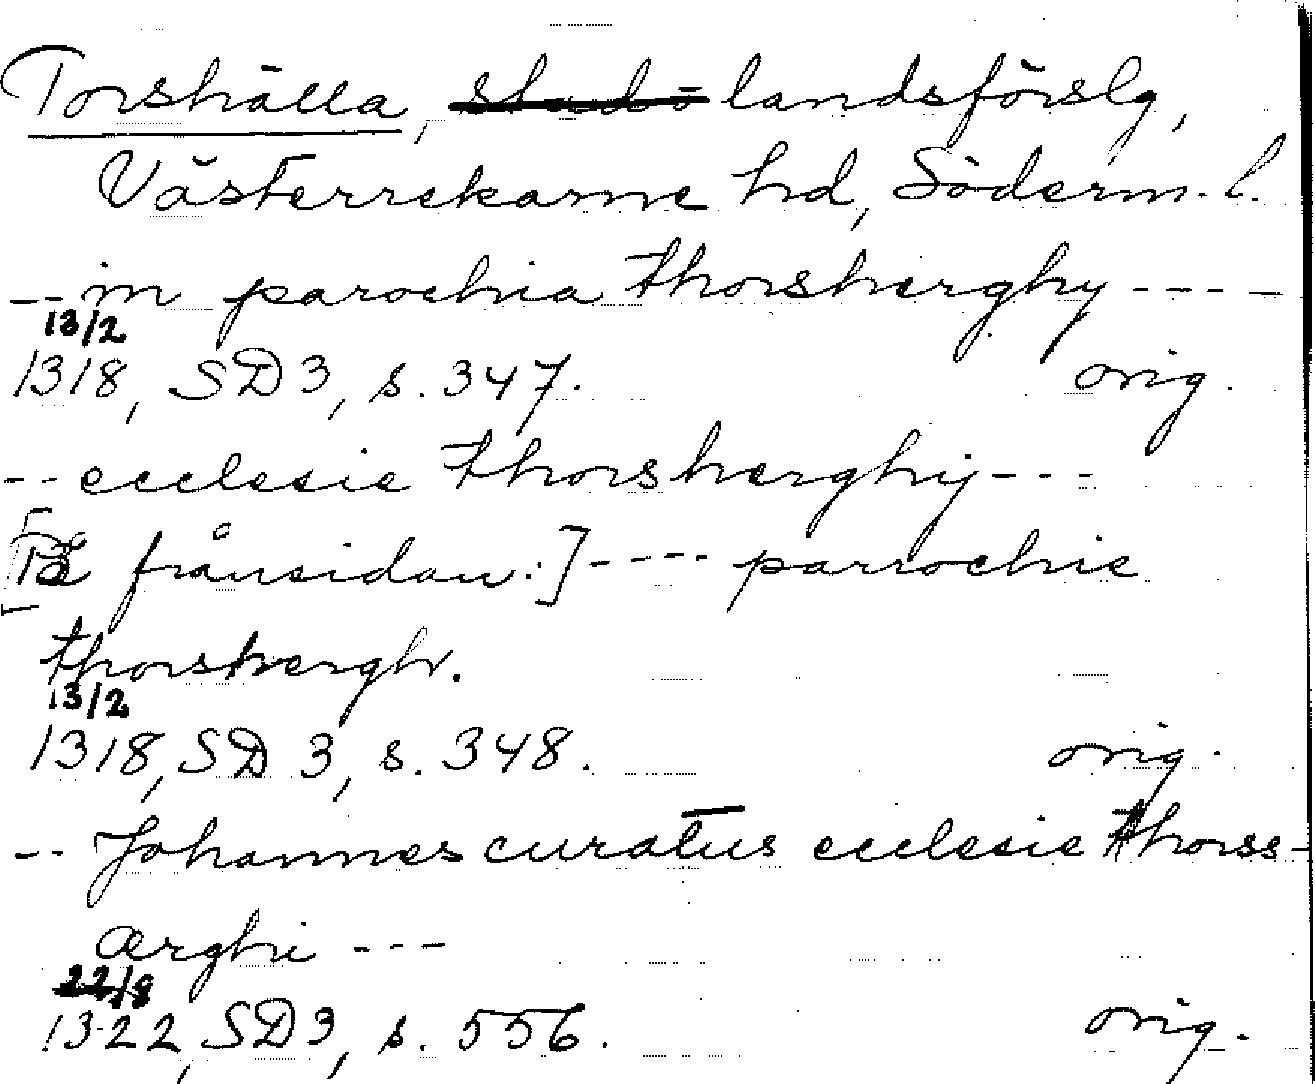 Torshälla, stads- landsförslg,
Västerrekarne hd, Söderm. l.
-- in parochia thorshærghy ----
13/2
1318, SD 3, s. 347. orig.
-- ecclesie thorshærghij ---
[På frånsidan:] ---- parrochie
thorshærgh.
13/2
1318, SD 3, s. 348. orig.
-- Johannes curatus ecclesie thorss-
ærghi ---
22/8
1322, SD 3, s. 556. orig.